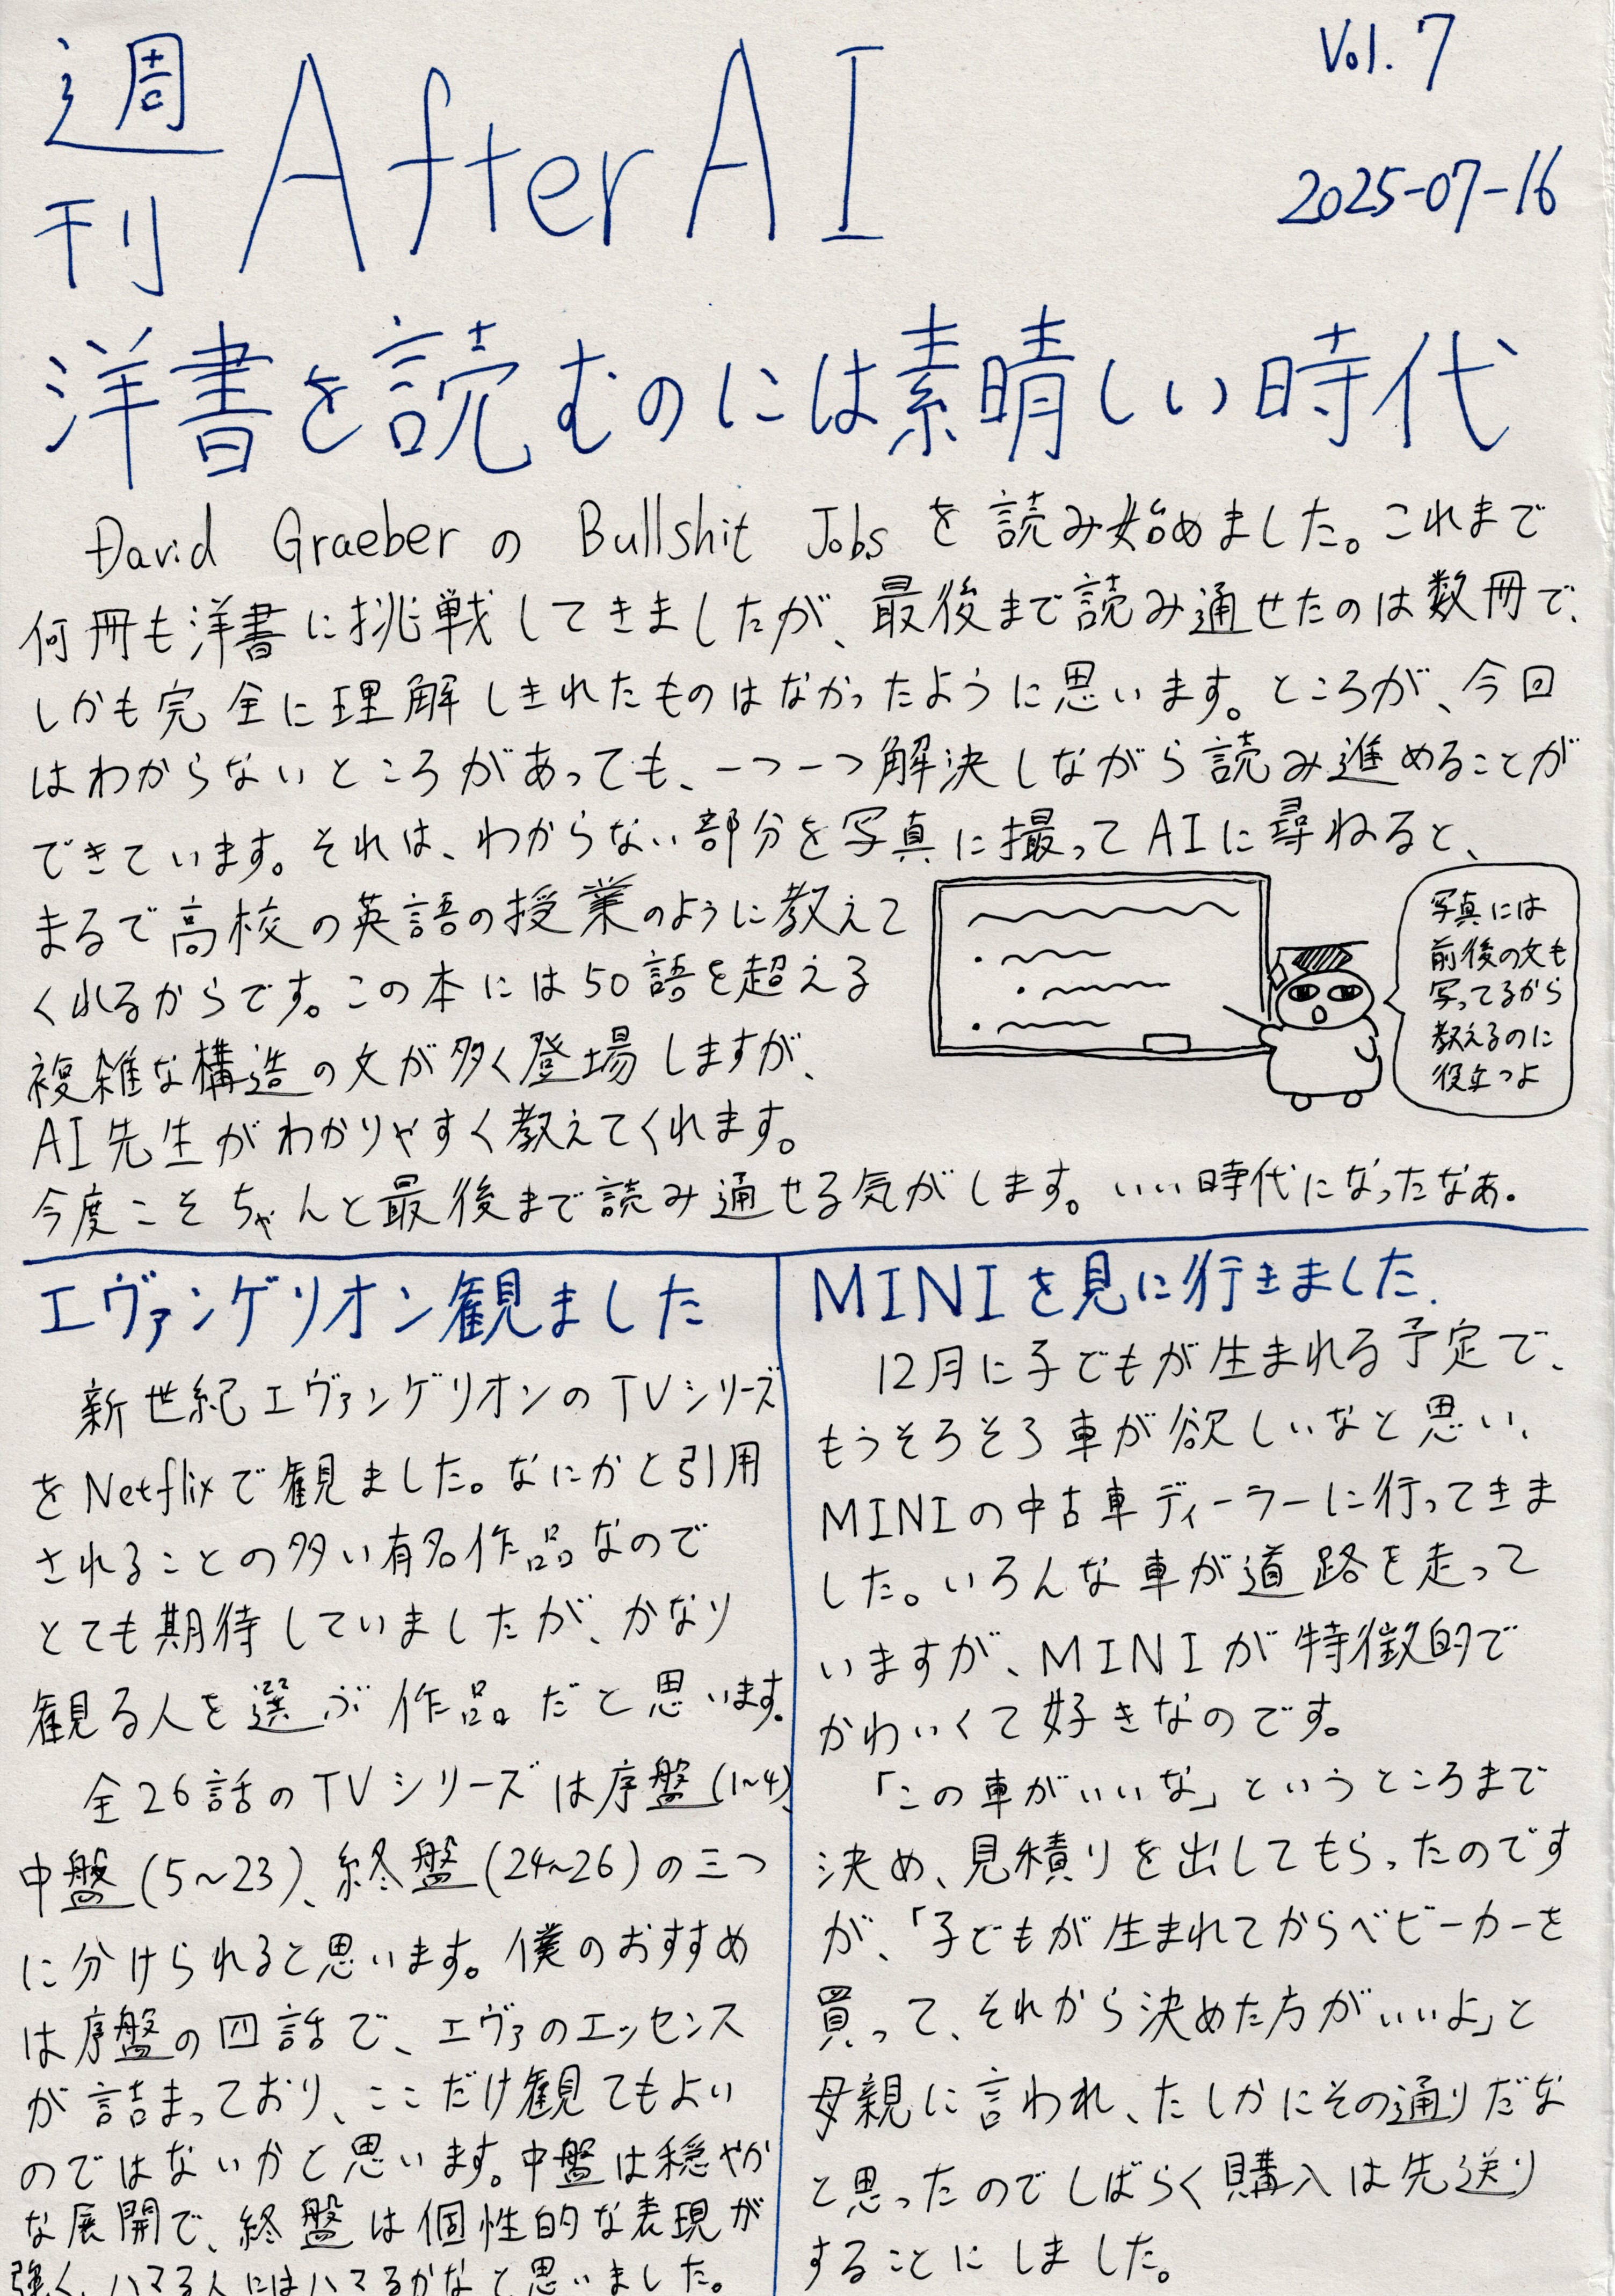 週刊 After AI
Vol. 7
2025-07-16
洋書を読むのには素晴しい時代
David Graeber の Bullshit Jobs を読み始めました。これまで
何冊も洋書に挑戦してきましたが、最後まで読み通せたのは数冊で、
しかも完全に理解しきれたものはなかったように思います。ところが、今回
はわからないところがあっても、一つ一つ解決しながら読み進めることが
できています。それは、わからない部分を写真に撮ってAIに尋ねると、
まるで高校の英語の授業のように教えて
くれるからです。この本には50語を超える
複雑な構造の文が多く登場しますが、
AI先生がわかりやすく教えてくれます。
今度こそちゃんと最後まで読み通せる気がします。いい時代になったなぁ。
写真には
前後の文も
写ってるから
教えるのに
役立つよ
エヴァンゲリオン観ました
新世紀エヴァンゲリオンのTVシリーズ
をNetflixで観ました。なにかと引用
されることの多い有名作品なので
とても期待していましたが、かなり
観る人を選ぶ作品だと思います。
全26話のTVシリーズは序盤(1~4)、
中盤(5~23)、終盤(24~26)の三つ
に分けられると思います。僕のおすすめ
は序盤の四話で、エヴァのエッセンス
が詰まっており、ここだけ観てもよい
のではないかと思います。中盤は穏やか
な展開で、終盤は個性的な表現が
強く、ハマる人にはハマるかなと思いました。
MINIを見に行きました。
12月に子どもが生まれる予定で、
もうそろそろ車が欲しいなと思い、
MINIの中古車ディーラーに行ってきま
した。いろんな車が道路を走って
いますが、MINIが特徴的で
かわいくて好きなのです。
「この車がいいな」というところまで
決め、見積りを出してもらったのです
が、「子どもが生まれてからベビーカーを
買って、それから決めた方がいいよ」と
母親に言われ、たしかにその通りだな
と思ったのでしばらく購入は先送り
することにしました。